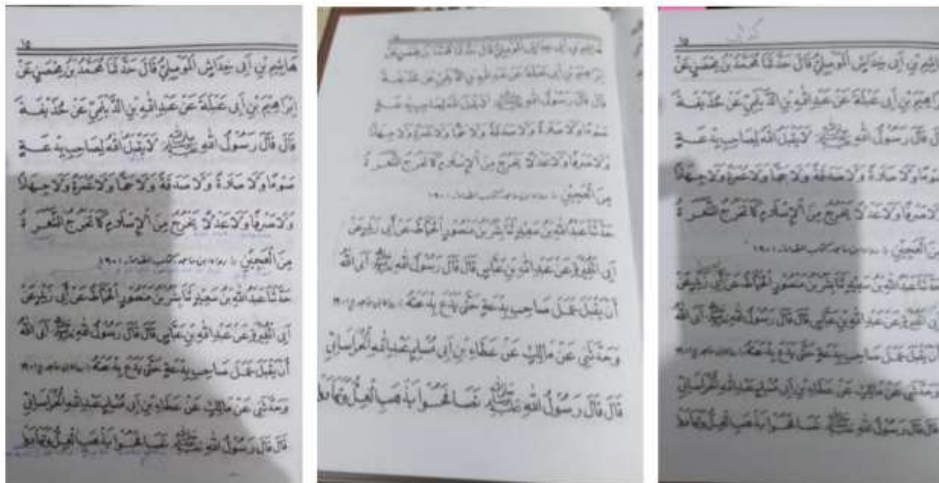 ١٥
هَاشِمِ بْنِ أَبِي خِدَاشٍ الْمَوْصِلِيُّ قَالَ حَدَّثَنَا مُحَمَّدُ بْنُ مِحْصَنٍ عَنْ
إِبْرَاهِيمَ بْنِ أَبِي عَبْلَةَ عَنْ عَبْدِ اللهِ بْنِ الدَّيْلَمِيِّ عَنْ حُذَيْفَةَ
قَالَ قَالَ رَسُولُ اللهِ ﷺ لَا يَقْبَلُ اللهُ لِصَاحِبِ بِدْعَةٍ
صَوْمًا وَلَا صَلَاةً وَلَا صَدَقَةً وَلَا حَجًّا وَلَا عُمْرَةً وَلَا جِهَادًا
وَلَا صَرْفًا وَلَا عَدْلًا يَخْرُجُ مِنَ الْإِسْلَامِ كَمَا تَخْرُجُ الشَّعَرَةُ
مِنَ الْعَجِيْنِ
حَدَّثَنَا عَبْدُ اللهِ بْنُ سَعِيْدٍ ثَنَا بِشْرُ بْنُ مَنْصُوْرٍ الْخَيَّاطُ عَنْ أَبِي زَيْدٍ عَنْ
أَبِي الْمُغِيْرَةِ عَنْ عَبْدِ اللهِ بْنِ عَبَّاسٍ قَالَ قَالَ رَسُولُ اللهِ ﷺ أَبَى اللهُ
أَنْ يَقْبَلَ عَمَلَ صَاحِبِ بِدْعَةٍ حَتَّى يَدَعَ بِدْعَتَهُ
وَحَدَّثَنِي عَنْ مَالِكٍ عَنْ عَطَاءِ بْنِ أَبِي مُسْلِمٍ عَبْدِ اللهِ الْخُرَاسَانِيِّ
قَالَ قَالَ رَسُولُ اللهِ ﷺ تَصَافَحُوْا يَذْهَبِ الْغِلُّ وَتَهَادَوْا